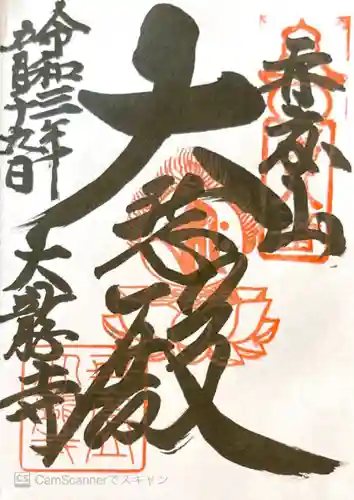 再度山
大悲殿
令和三年
月十九日
大龍寺
CS CamScannerでスキャン